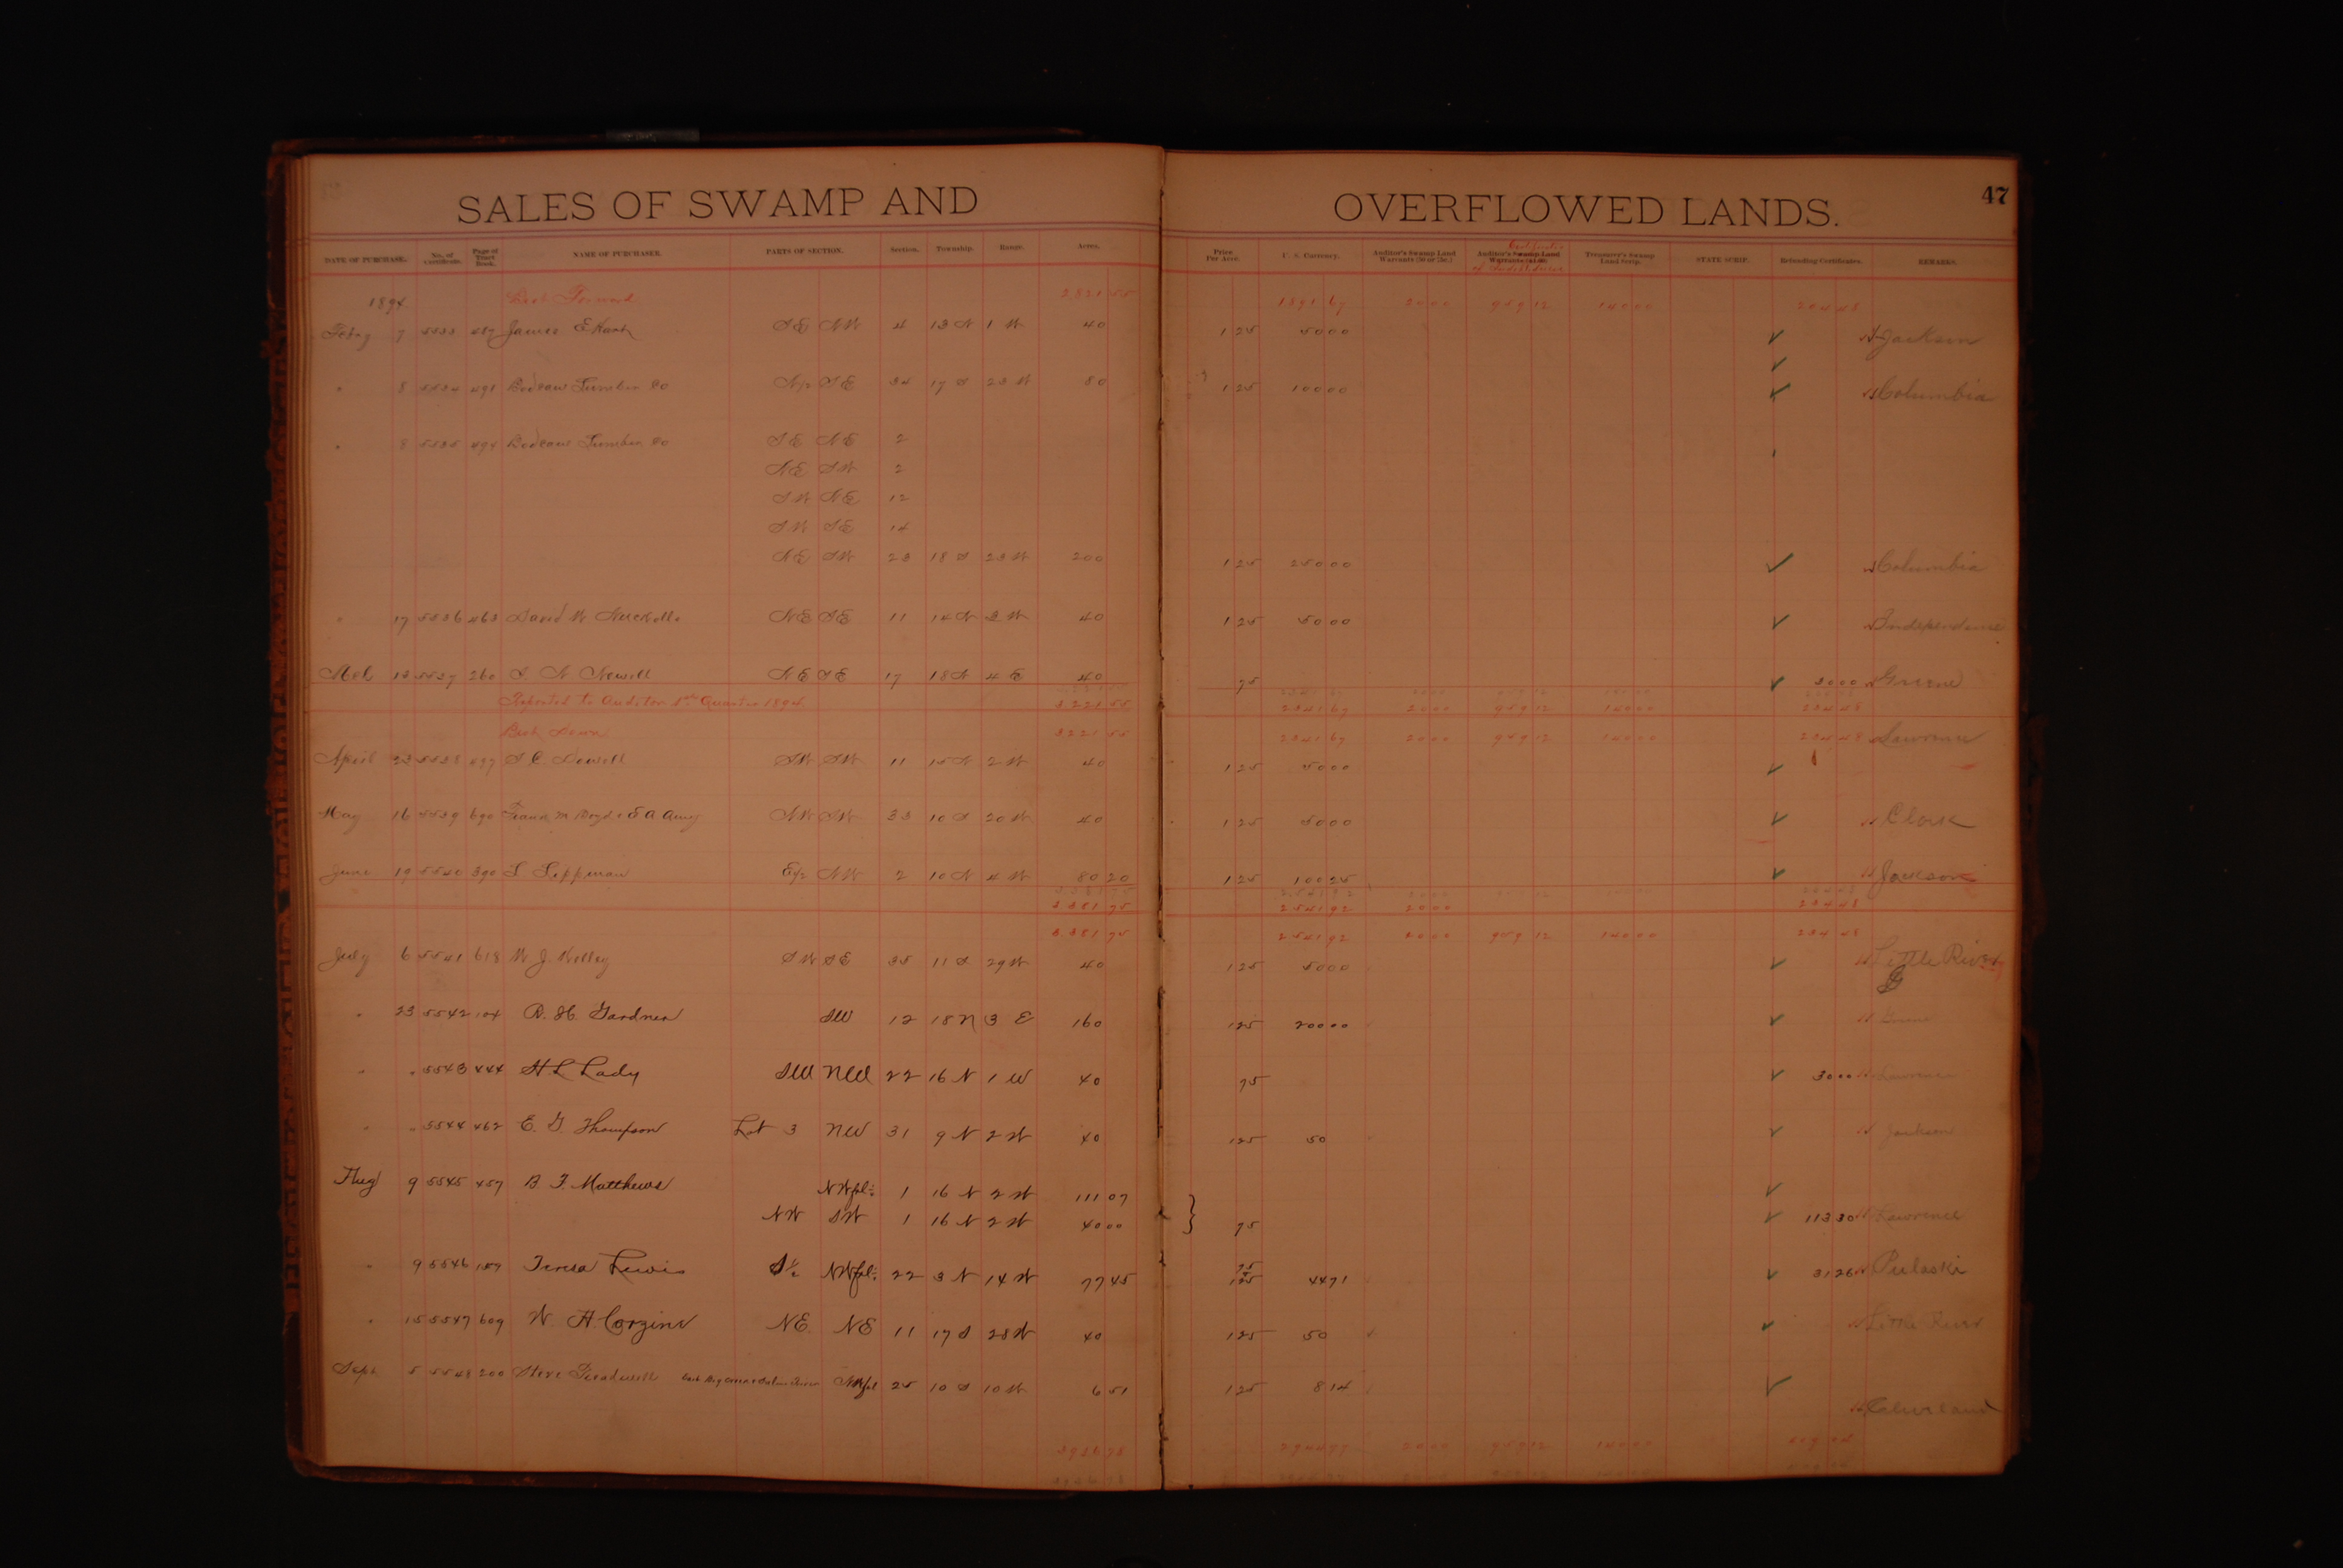 SALES OF SWAMP AND OVERFLOWED LANDS. 47
DATE OF PURCHASE. No. of Certificate. Page of Tract Book. NAME OF PURCHASER. PARTS OF SECTION. Section. Township. Range. Acres. Price Per Acre. U. S. Currency. Auditor's Swamp Land Warrants (50 or 75c.) Auditor's Swamp Land Warrants Treasurer's Swamp Land Scrip. STATE SCRIP. Refunding Certificates. REMARKS.
1894 Forward 2821 55 1891 67 2000 959 12 14000 204 48
Feby 7 5533 James SE NW 4 13 N 1 W 40 1 25 5000 Jackson
" 8 5534 Bodcaw Lumber Co SE 34 17 S 23 W 80 1 25 10000 Columbia
" 8 5535 494 Bodcaw Lumber Co SE NE 2
NE SW 2
SW NE 12
SW SE 14
NE SW 23 18 S 23 W 200 1 25 25000 Columbia
" 17 5536 463 David W Nuckolls NE SE 11 14 N 3 W 40 1 25 5000 Independence
Mch 5537 260 Newell NE SE 17 18 N 4 E 40 75 3000 Greene
Reported to Auditor 1st Quarter 1894 3221 55 2341 67 2000 959 12 14000 234 48
Down 3221 55 2341 67 2000 959 12 14000 234 48 Lawrence
April 5538 SW SW 11 15 N 2 W 40 1 25 5000
May 16 5539 690 Frank M Boyd & SW 33 10 S 20 W 40 1 25 5000 Clark
June 19 5540 390 L Lippman E½ NW 2 10 N 4 W 80 20 1 25 100 25 Jackson
3381 75 2541 92 2000 234 48
3381 75 2541 92 2000 959 12 14000 234 48
July 6 5541 618 W J Kelley SW SE 35 11 S 29 W 40 1 25 5000 Little River
" 23 5542 104 R. H. Gardner SW 12 18 N 3 E 160 125 20000 Greene
" " 5543 444 H L Lady SW NW 22 16 N 1 W 40 75 3000 Lawrence
" " 5544 462 E. G. Thompson Lot 3 NW 31 9 N 2 W 40 125 50 Jackson
Aug 9 5545 457 B. F. Matthews NW frl: 1 16 N 2 W 111 07
NW SW 1 16 N 2 W 40 00 } 75 113 30 Lawrence
" 9 5546 Teresa Lewis S½ NW frl: 22 3 N 14 W 77 45 75 125 44 71 31 26 Pulaski
" 15 5547 609 W. H. Corzine NE NE 11 17 S 28 W 40 125 50 Little River
Sept 5 5548 200 Steve Treadwell frl 25 10 S 10 W 6 51 1 25 8 14 Cleveland
2944 77 2000 959 12 14000